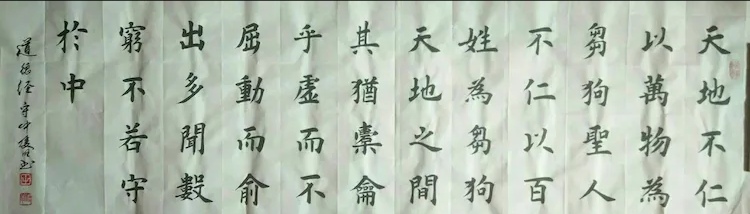 天地不仁
以萬物為
芻狗聖人
不仁以百
姓為芻狗
天地之間
其猶橐龠
乎虛而不
屈動而俞
出多聞數
窮不若守
於中
道德經守中